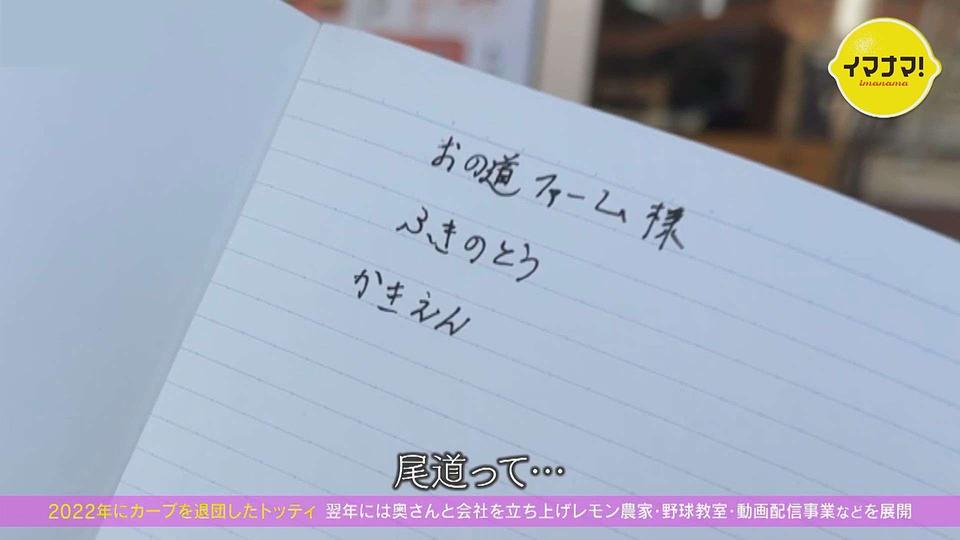 イマナマ!
imanama
おの道ファーム 様
ふきのとう
かきえん
尾道って…
2022年にカープを退団したトッティ 翌年には奥さんと会社を立ち上げレモン農家・野球教室・動画配信事業などを展開